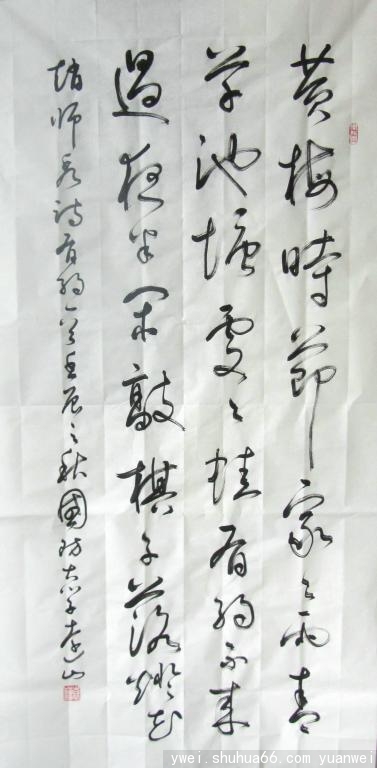 黄梅時節家々雨青
草池塘處々蛙有約不來
過夜半閑敲棋子落燈花
趙師秀詩有約一首壬辰之秋國防大學李山
ywei.shuhua66.com yuanwei